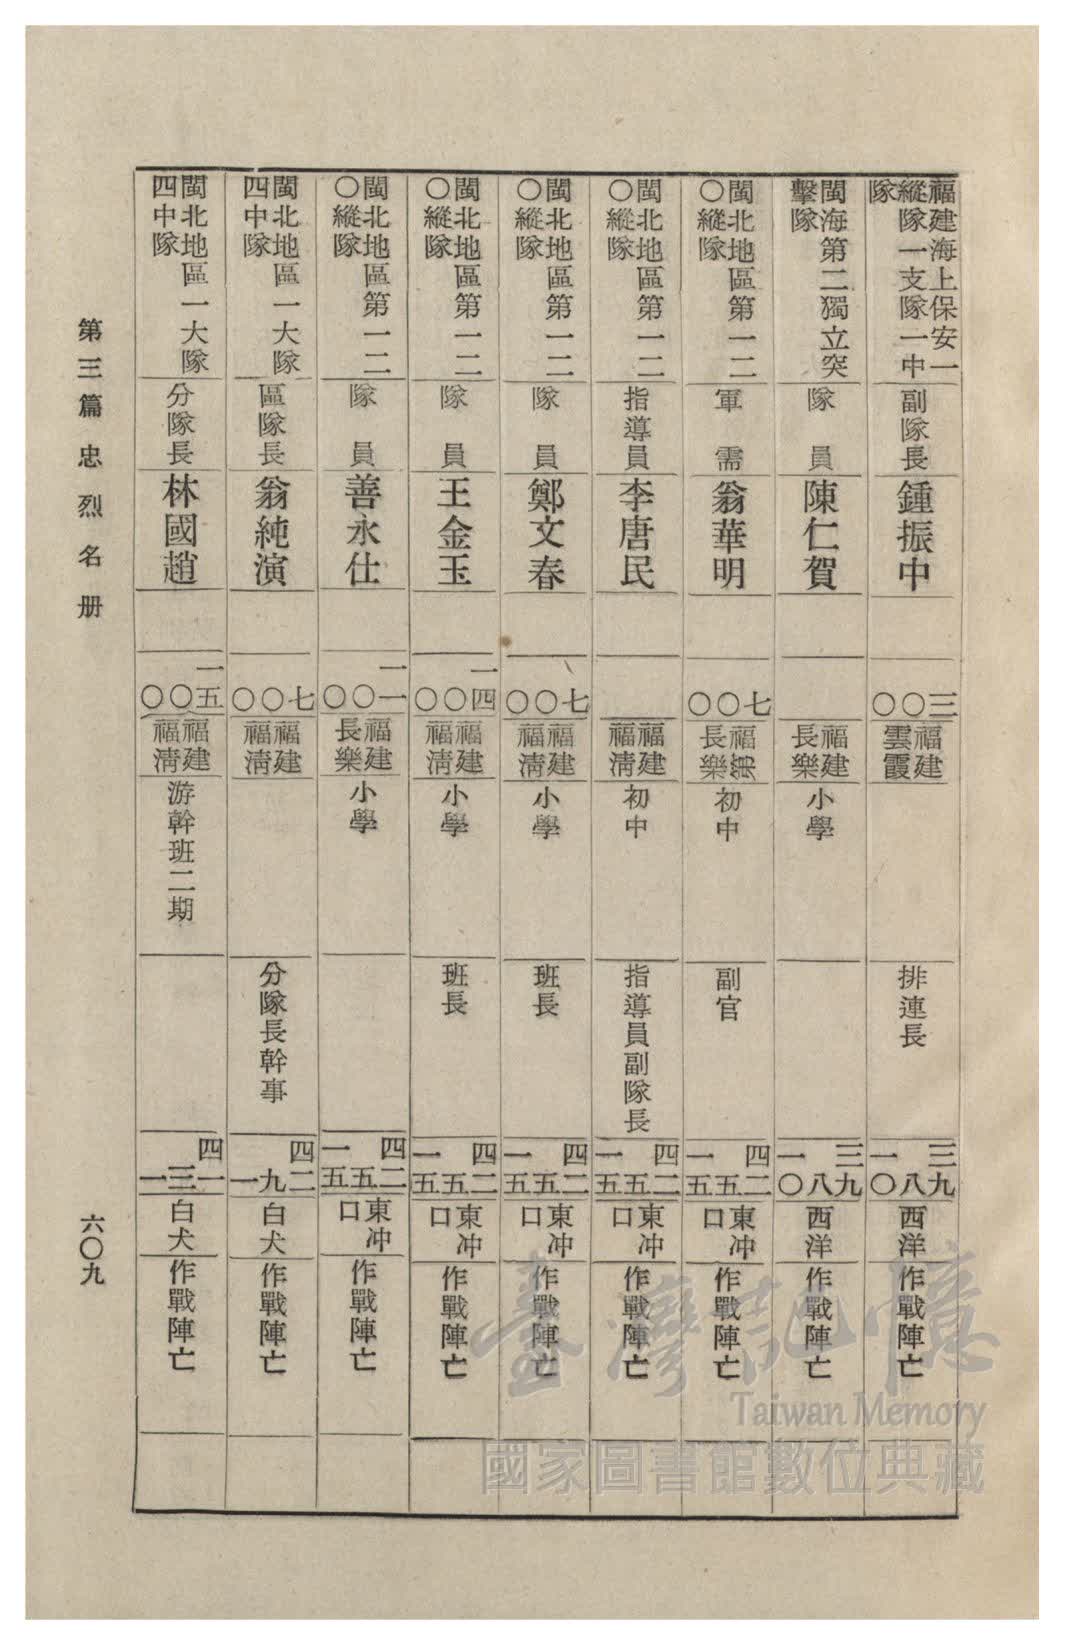 福建海上保安一
縱隊一支隊一中
隊
副隊長
鍾振中
三
〇〇
福建
雲霞
排連長
三
一
九
八
〇
西洋
作戰陣亡
閩海第二獨立突
擊隊
隊員
陳仁賀
福建
長樂
小學
三
一
九
八
〇
西洋
作戰陣亡
閩北地區第一二
〇縱隊
軍需
翁華明
七
〇〇
福第
長樂
初中
副官
四
一
二
五
五
東冲
口
作戰陣亡
閩北地區第一二
〇縱隊
指導員
李唐民
福建
福清
初中
指導員副隊長
四
一
二
五
五
東冲
口
作戰陣亡
閩北地區第一二
〇縱隊
隊員
鄭文春
七
〇〇
福建
福清
小學
班長
四
一
二
五
五
東冲
口
作戰陣亡
閩北地區第一二
〇縱隊
隊員
王金玉
一
四
〇〇
福建
福清
小學
班長
四
一
二
五
五
東冲
口
作戰陣亡
閩北地區第一二
〇縱隊
隊員
善永仕
一
一
〇〇
福建
長樂
小學
四
一
二
五
五
東冲
口
作戰陣亡
閩北地區一大隊
四中隊
區隊長
翁純演
七
〇〇
福建
福清
分隊長幹事
四
二
九
一
白犬
作戰陣亡
閩北地區一大隊
四中隊
分隊長
林國趙
一
五
〇〇
福建
福清
游幹班二期
四
一
三
一
白犬
作戰陣亡
第三篇 忠烈名册
六〇九
臺灣記憶
Taiwan Memory
國家圖書館數位典藏